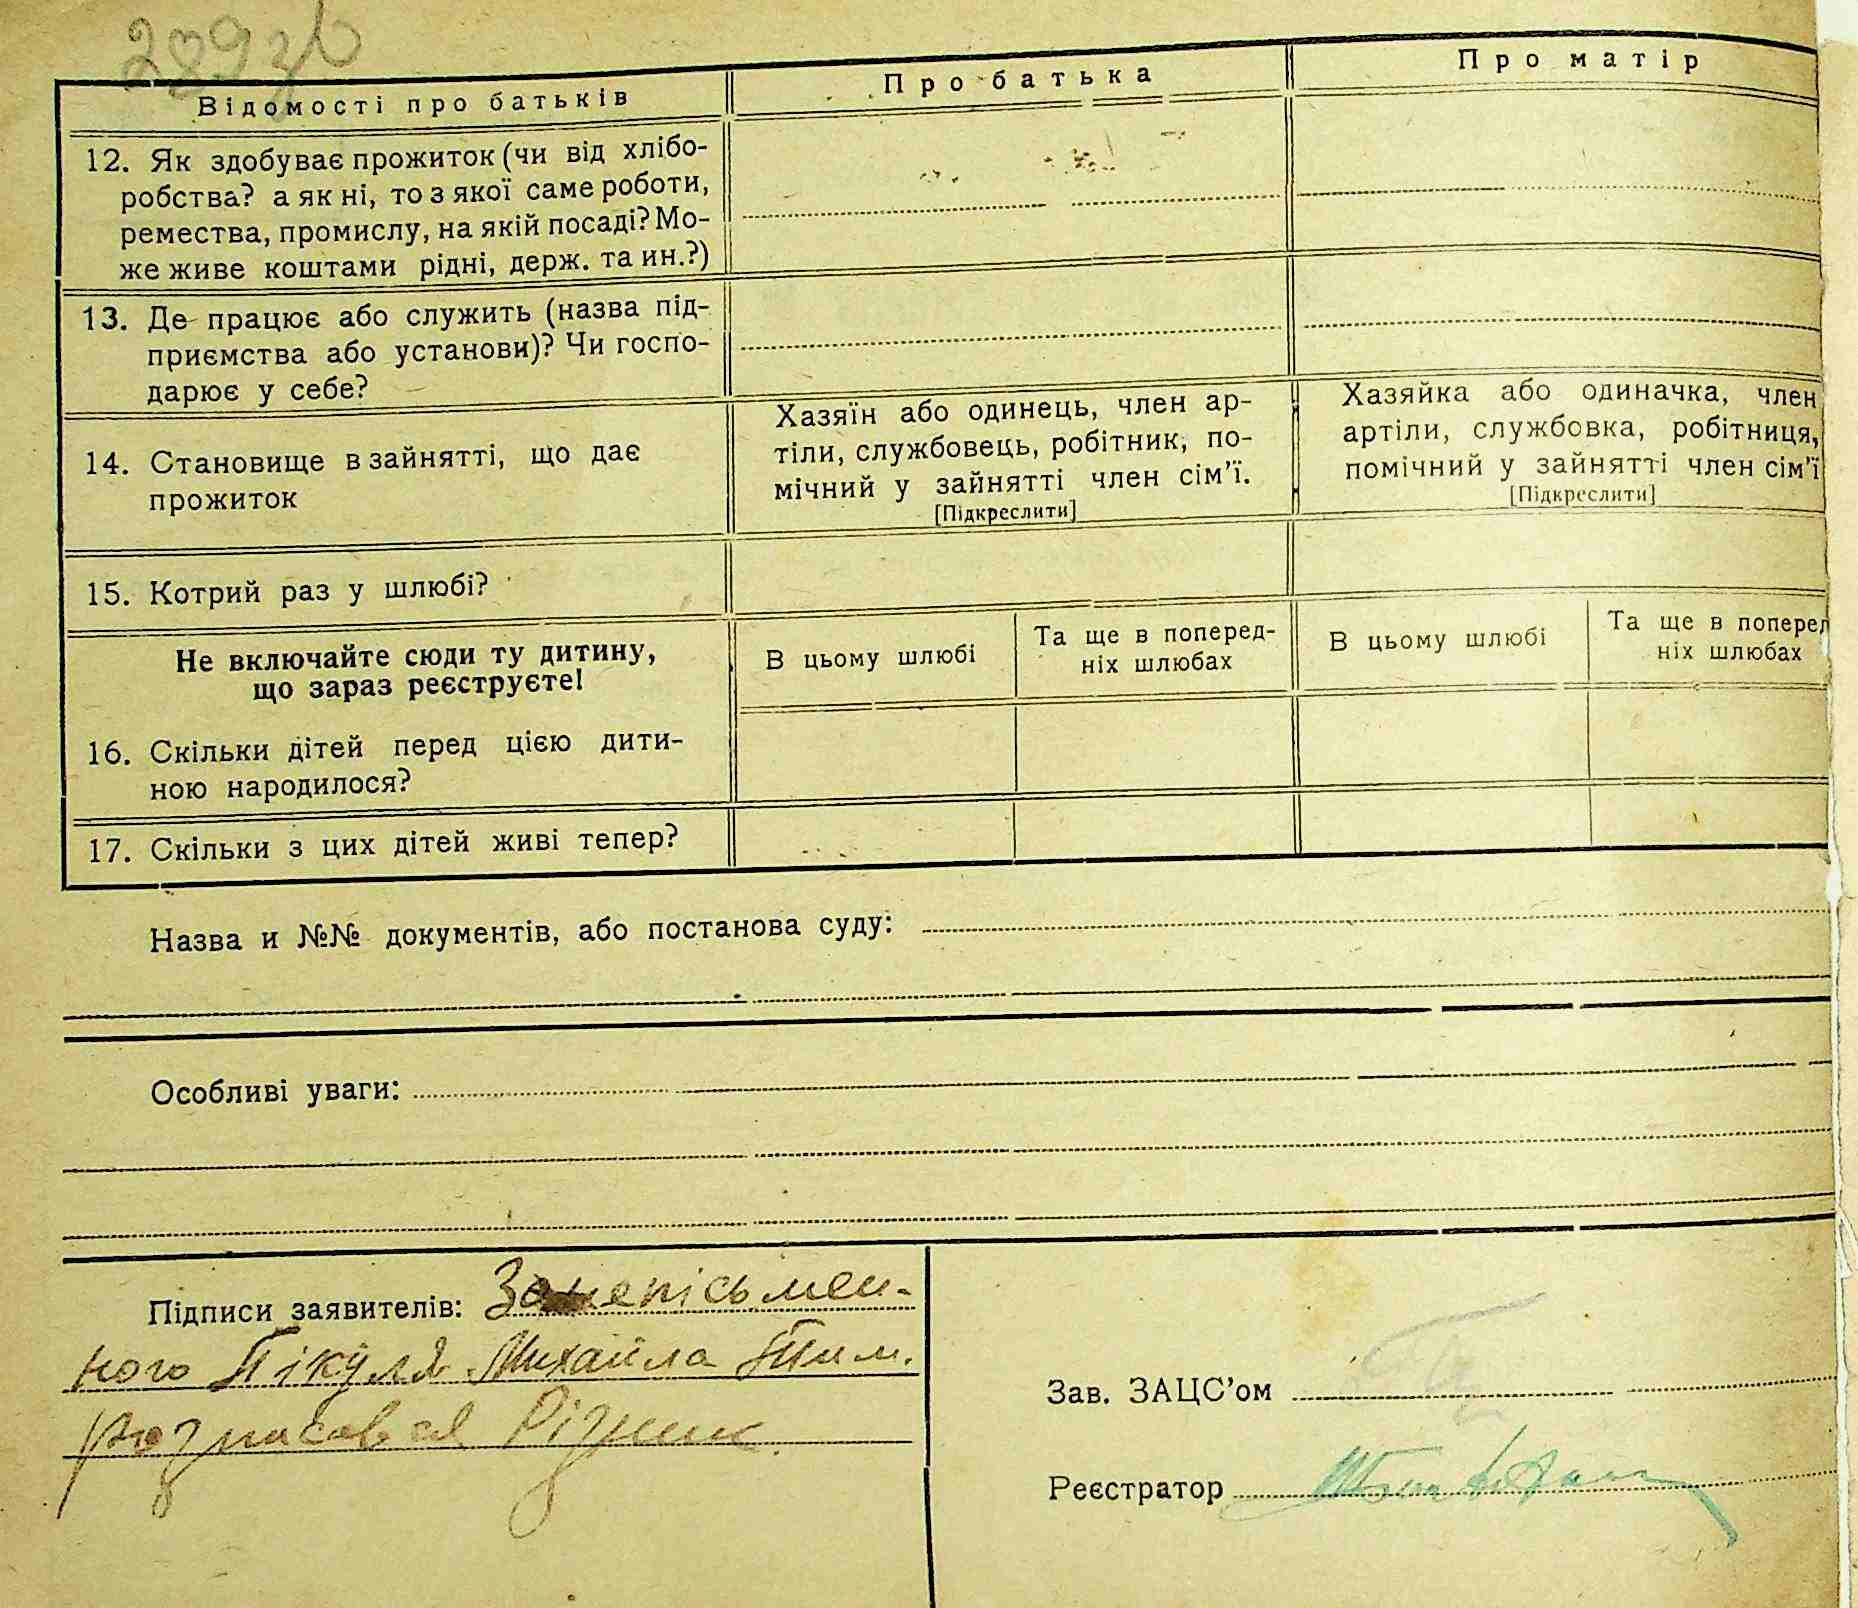 289зв
Відомості про батьків
Про батька
Про матір
12. Як здобуває прожиток (чи від хлібо-
робства? а як ні, то з якої саме роботи,
ремества, промислу, на якій посаді? Мо-
же живе коштами рідні, держ. та ин.?)
13. Де працює або служить (назва під-
приємства або установи)? Чи госпо-
дарює у себе?
14. Становище в зайнятті, що дає
прожиток
Хазяїн або одинець, член ар-
тіли, службовець, робітник, по-
мічний у зайнятті член сім'ї.
[Підкреслити]
Хазяйка або одиначка, член
артіли, службовка, робітниця,
помічний у зайнятті член сім'ї
[Підкреслити]
15. Котрий раз у шлюбі?
Не включайте сюди ту дитину,
що зараз реєструєте!
В цьому шлюбі
Та ще в поперед-
ніх шлюбах
В цьому шлюбі
Та ще в поперед
ніх шлюбах
16. Скільки дітей перед цією дити-
ною народилося?
17. Скільки з цих дітей живі тепер?
Назва и №№ документів, або постанова суду:
Особливі уваги:
Підписи заявителів: За непісьмен-
ного Пікуля Михайла Тим.
розписався Різник
Зав. ЗАЦС'ом
Реєстратор